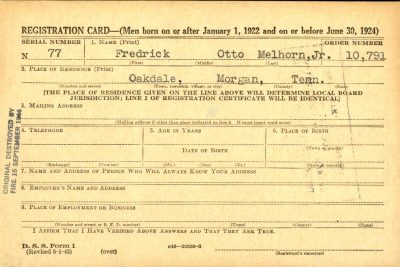 REGISTRATION CARD—(Men born on or after January 1, 1922 and on or before June 30, 1924)
SERIAL NUMBER 1. NAME (Print) ORDER NUMBER
N 77 Fredrick Otto Melhorn,Jr. 10,791
(First) (Middle) (Last)
2. PLACE OF RESIDENCE (Print)
Oakdale, Morgan, Tenn.
(Number and street) (Town, township, village, or city) (County) (State)
[THE PLACE OF RESIDENCE GIVEN ON THE LINE ABOVE WILL DETERMINE LOCAL BOARD
JURISDICTION; LINE 2 OF REGISTRATION CERTIFICATE WILL BE IDENTICAL]
3. MAILING ADDRESS
(Mailing address if other than place indicated on line 2. If same insert word same)
4. TELEPHONE 5. AGE IN YEARS 6. PLACE OF BIRTH
(Town) (County)
DATE OF BIRTH
(Exchange) (Number) (Mo.) (Day) (Yr.) (State or country)
7. NAME AND ADDRESS OF PERSON WHO WILL ALWAYS KNOW YOUR ADDRESS
8. EMPLOYER'S NAME AND ADDRESS
9. PLACE OF EMPLOYMENT OR BUSINESS
(Number and street or R. F. D. number) (Town) (County) (State)
I AFFIRM THAT I HAVE VERIFIED ABOVE ANSWERS AND THAT THEY ARE TRUE.
D. S. S. Form 1
(Revised 6-1-42) (over) (Registrant's signature)
ORIGINAL DESTROYED BY
FIRE 15 SEPTEMBER